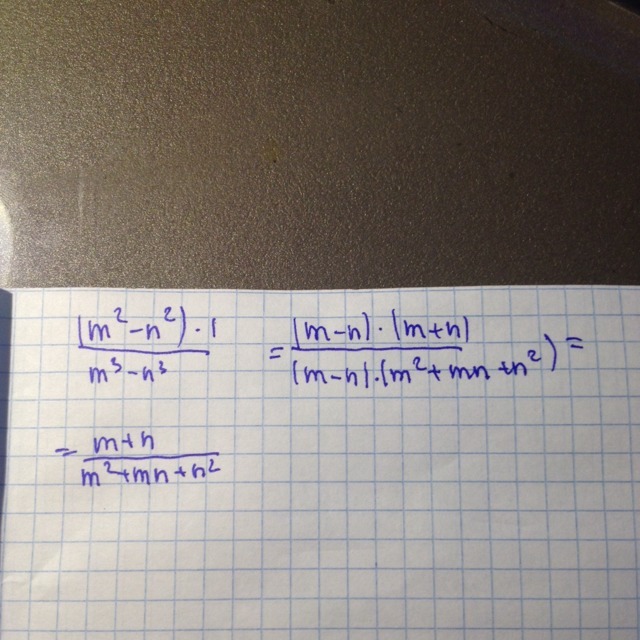 (m² - n²) · 1 / m³ - n³ = (m - n) · (m + n) / (m - n) · (m² + mn + n²) =
= m + n / m² + mn + n²